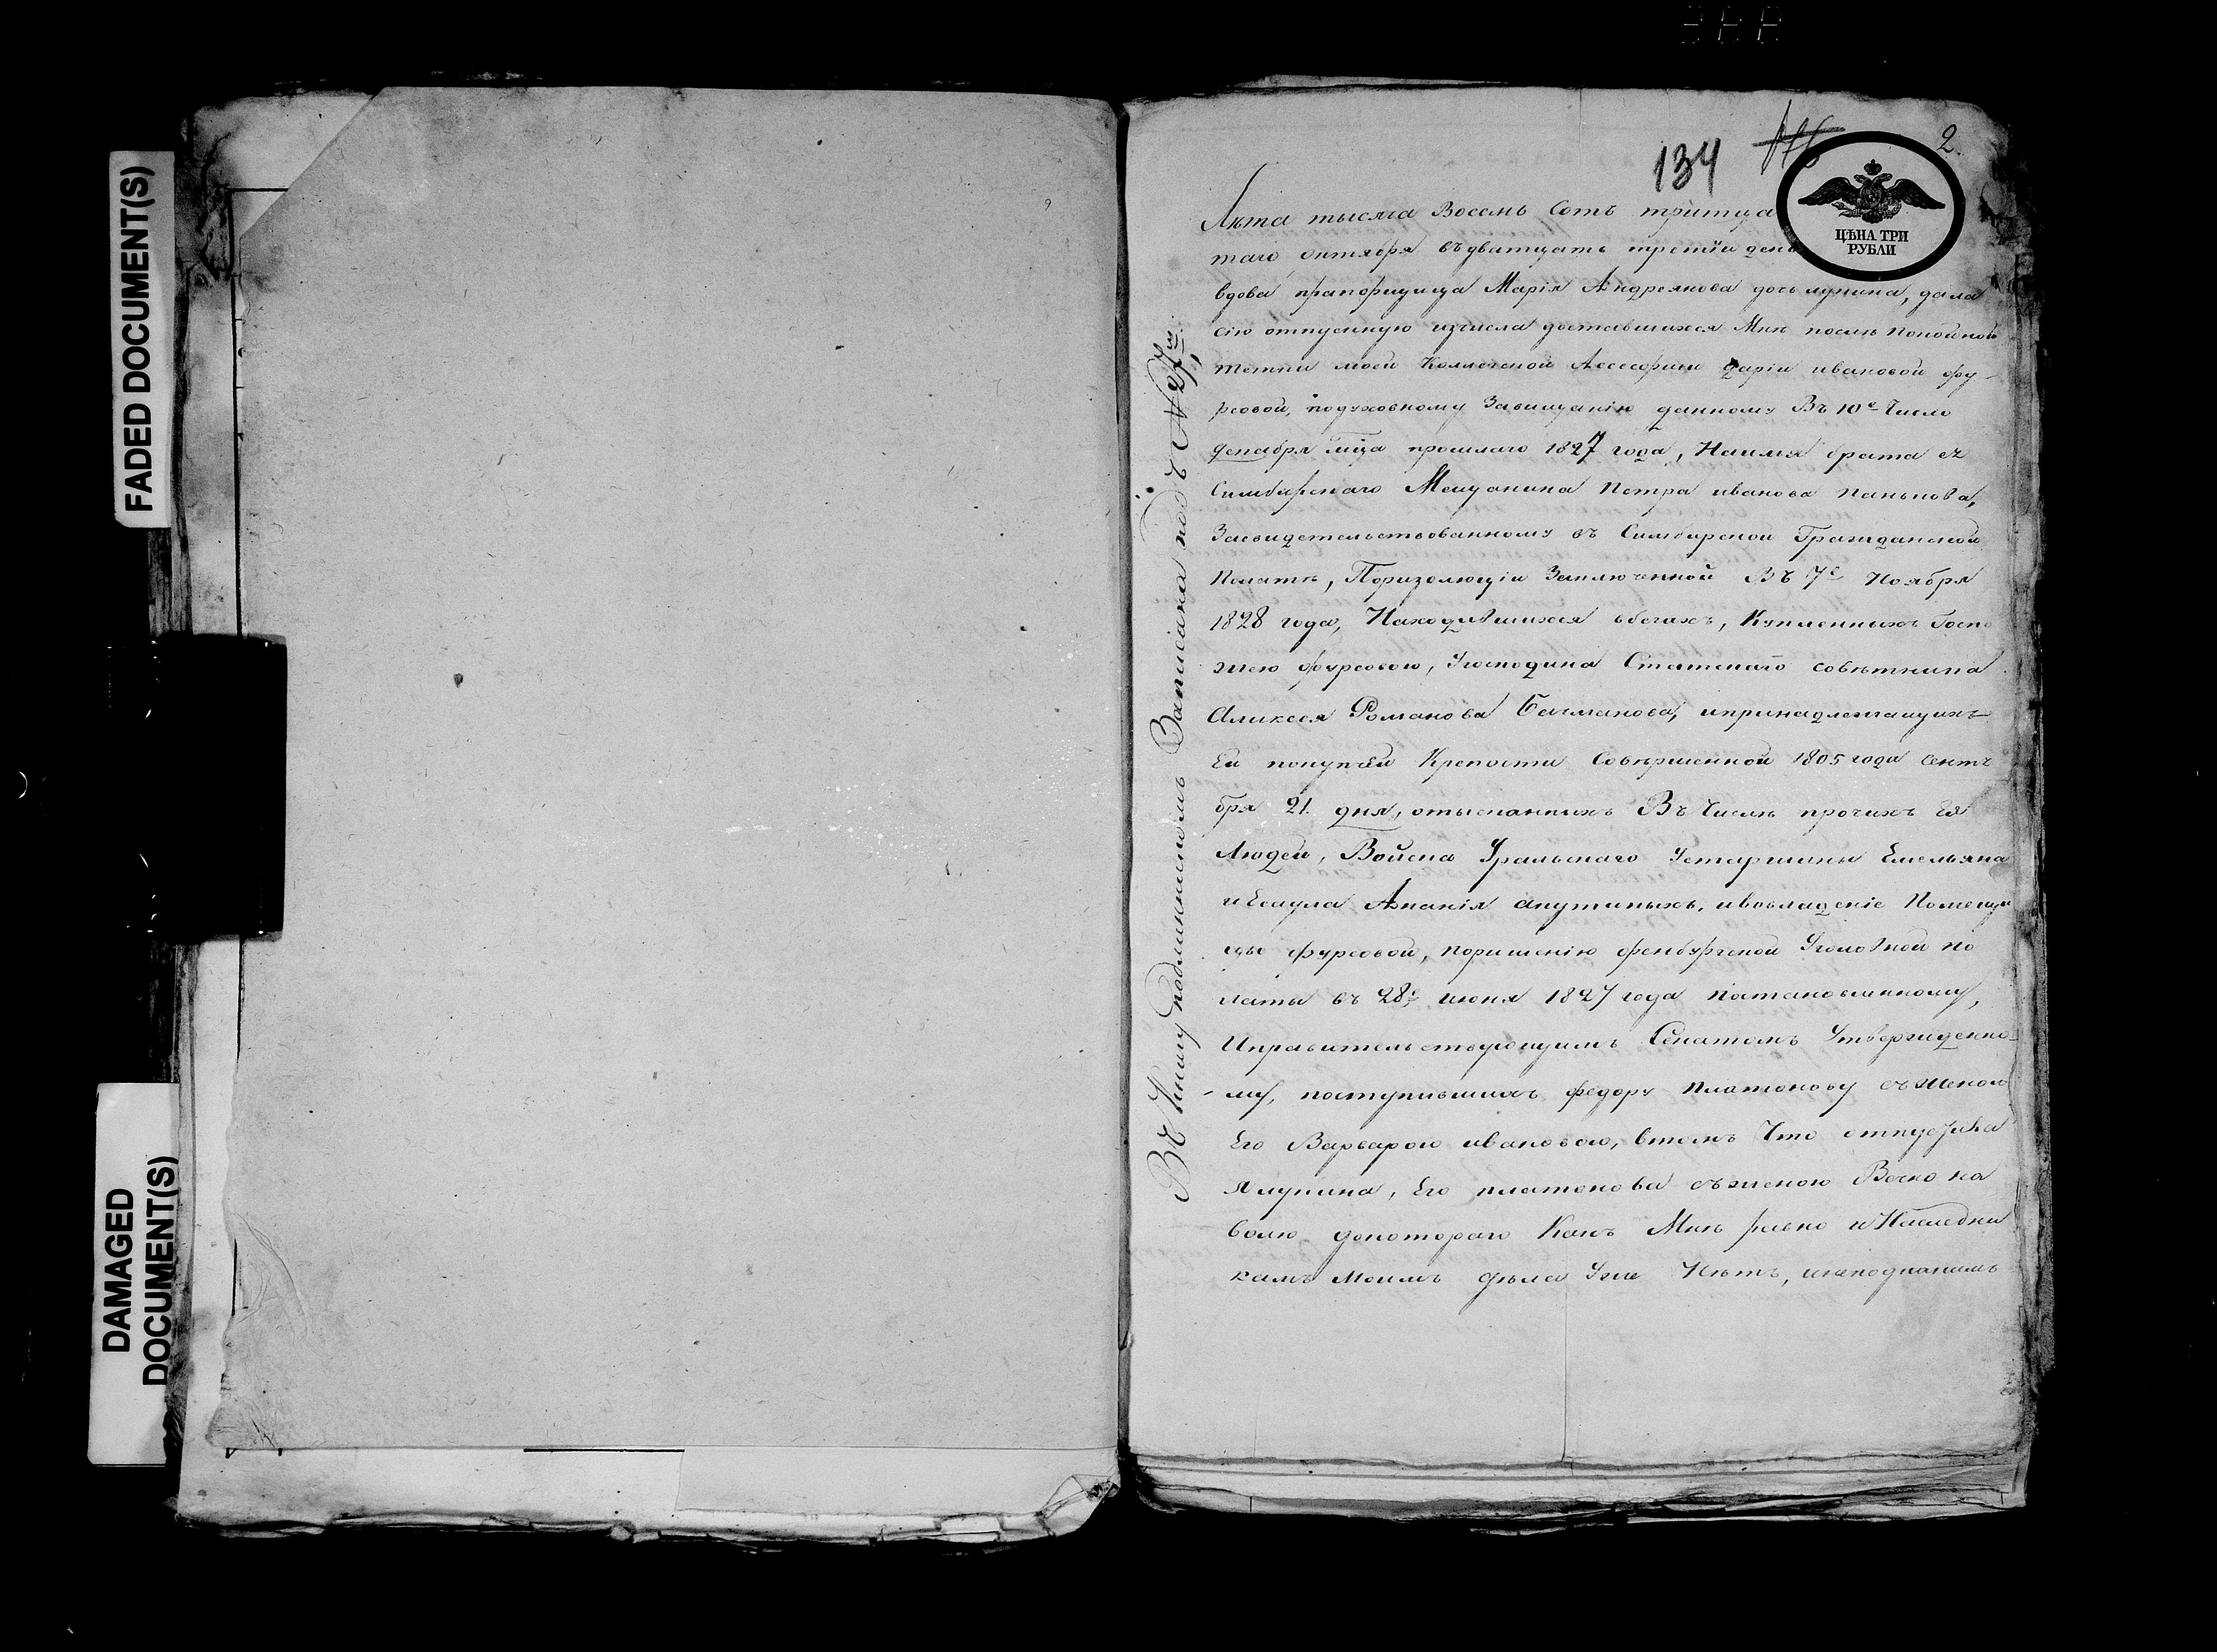 FADED DOCUMENT(S)
DAMAGED
DOCUMENT(S)
134
2.
ЦѢНА ТРИ
РУБЛИ
Лѣта тысяча Восемь Сотъ тритца
таго, октября въ дватцать третїй день
вдова прапорщица Марія Андреянова дочь лупина, дала
сію отпускную изчисла доставшихся Мнѣ послѣ покойной
тетки моей Коллежской Ассесорши Дарїи ивановой фу-
рсовой, подуховному Завищанію данному Въ 10е Число
декабря мца прошлаго 1827 года, Наимя брата ея
Симбирскаго Мещанина Петра иванова Панькова,
Засвидетельствованному въ Симбирской Гражданской
Полатѣ, Поризолюціи Заключенной Въ 7е Ноября
1828 года, Находившихся вбегахъ, Купленныхъ Госпо
жею фурсовою, Угосподина Статскаго совѣтника
Аликсея Романова, ипринадлежащихъ
Ей покупкѣ Крепости Совершенной 1805 года Сентя
бря 21. дня, отысканныхъ Въ Числѣ прочихъ Ея
Людей, Войска Уральскаго Устаршины Емельяна
иЕсаула Ананія акутиныхъ, ивовладеніе Помещи
цы фурсовой, поришенію оренбургской Уголовной по
латы въ 28е июня 1827 года постановленному,
Иправительствующимъ Сенатомъ Утвержденно-
му, поступившихъ федору платонову съженою
Его Варварою ивановою, втомъ Что отпустила
я лупина, Его платонова съженою Вечно на
волю докотораго Какъ Мнѣ равно иНаследни
камъ Моимъ дѣла Уже Нѣтъ,
Въ Книгу подлинникомъ Записана подъ N 27мъ